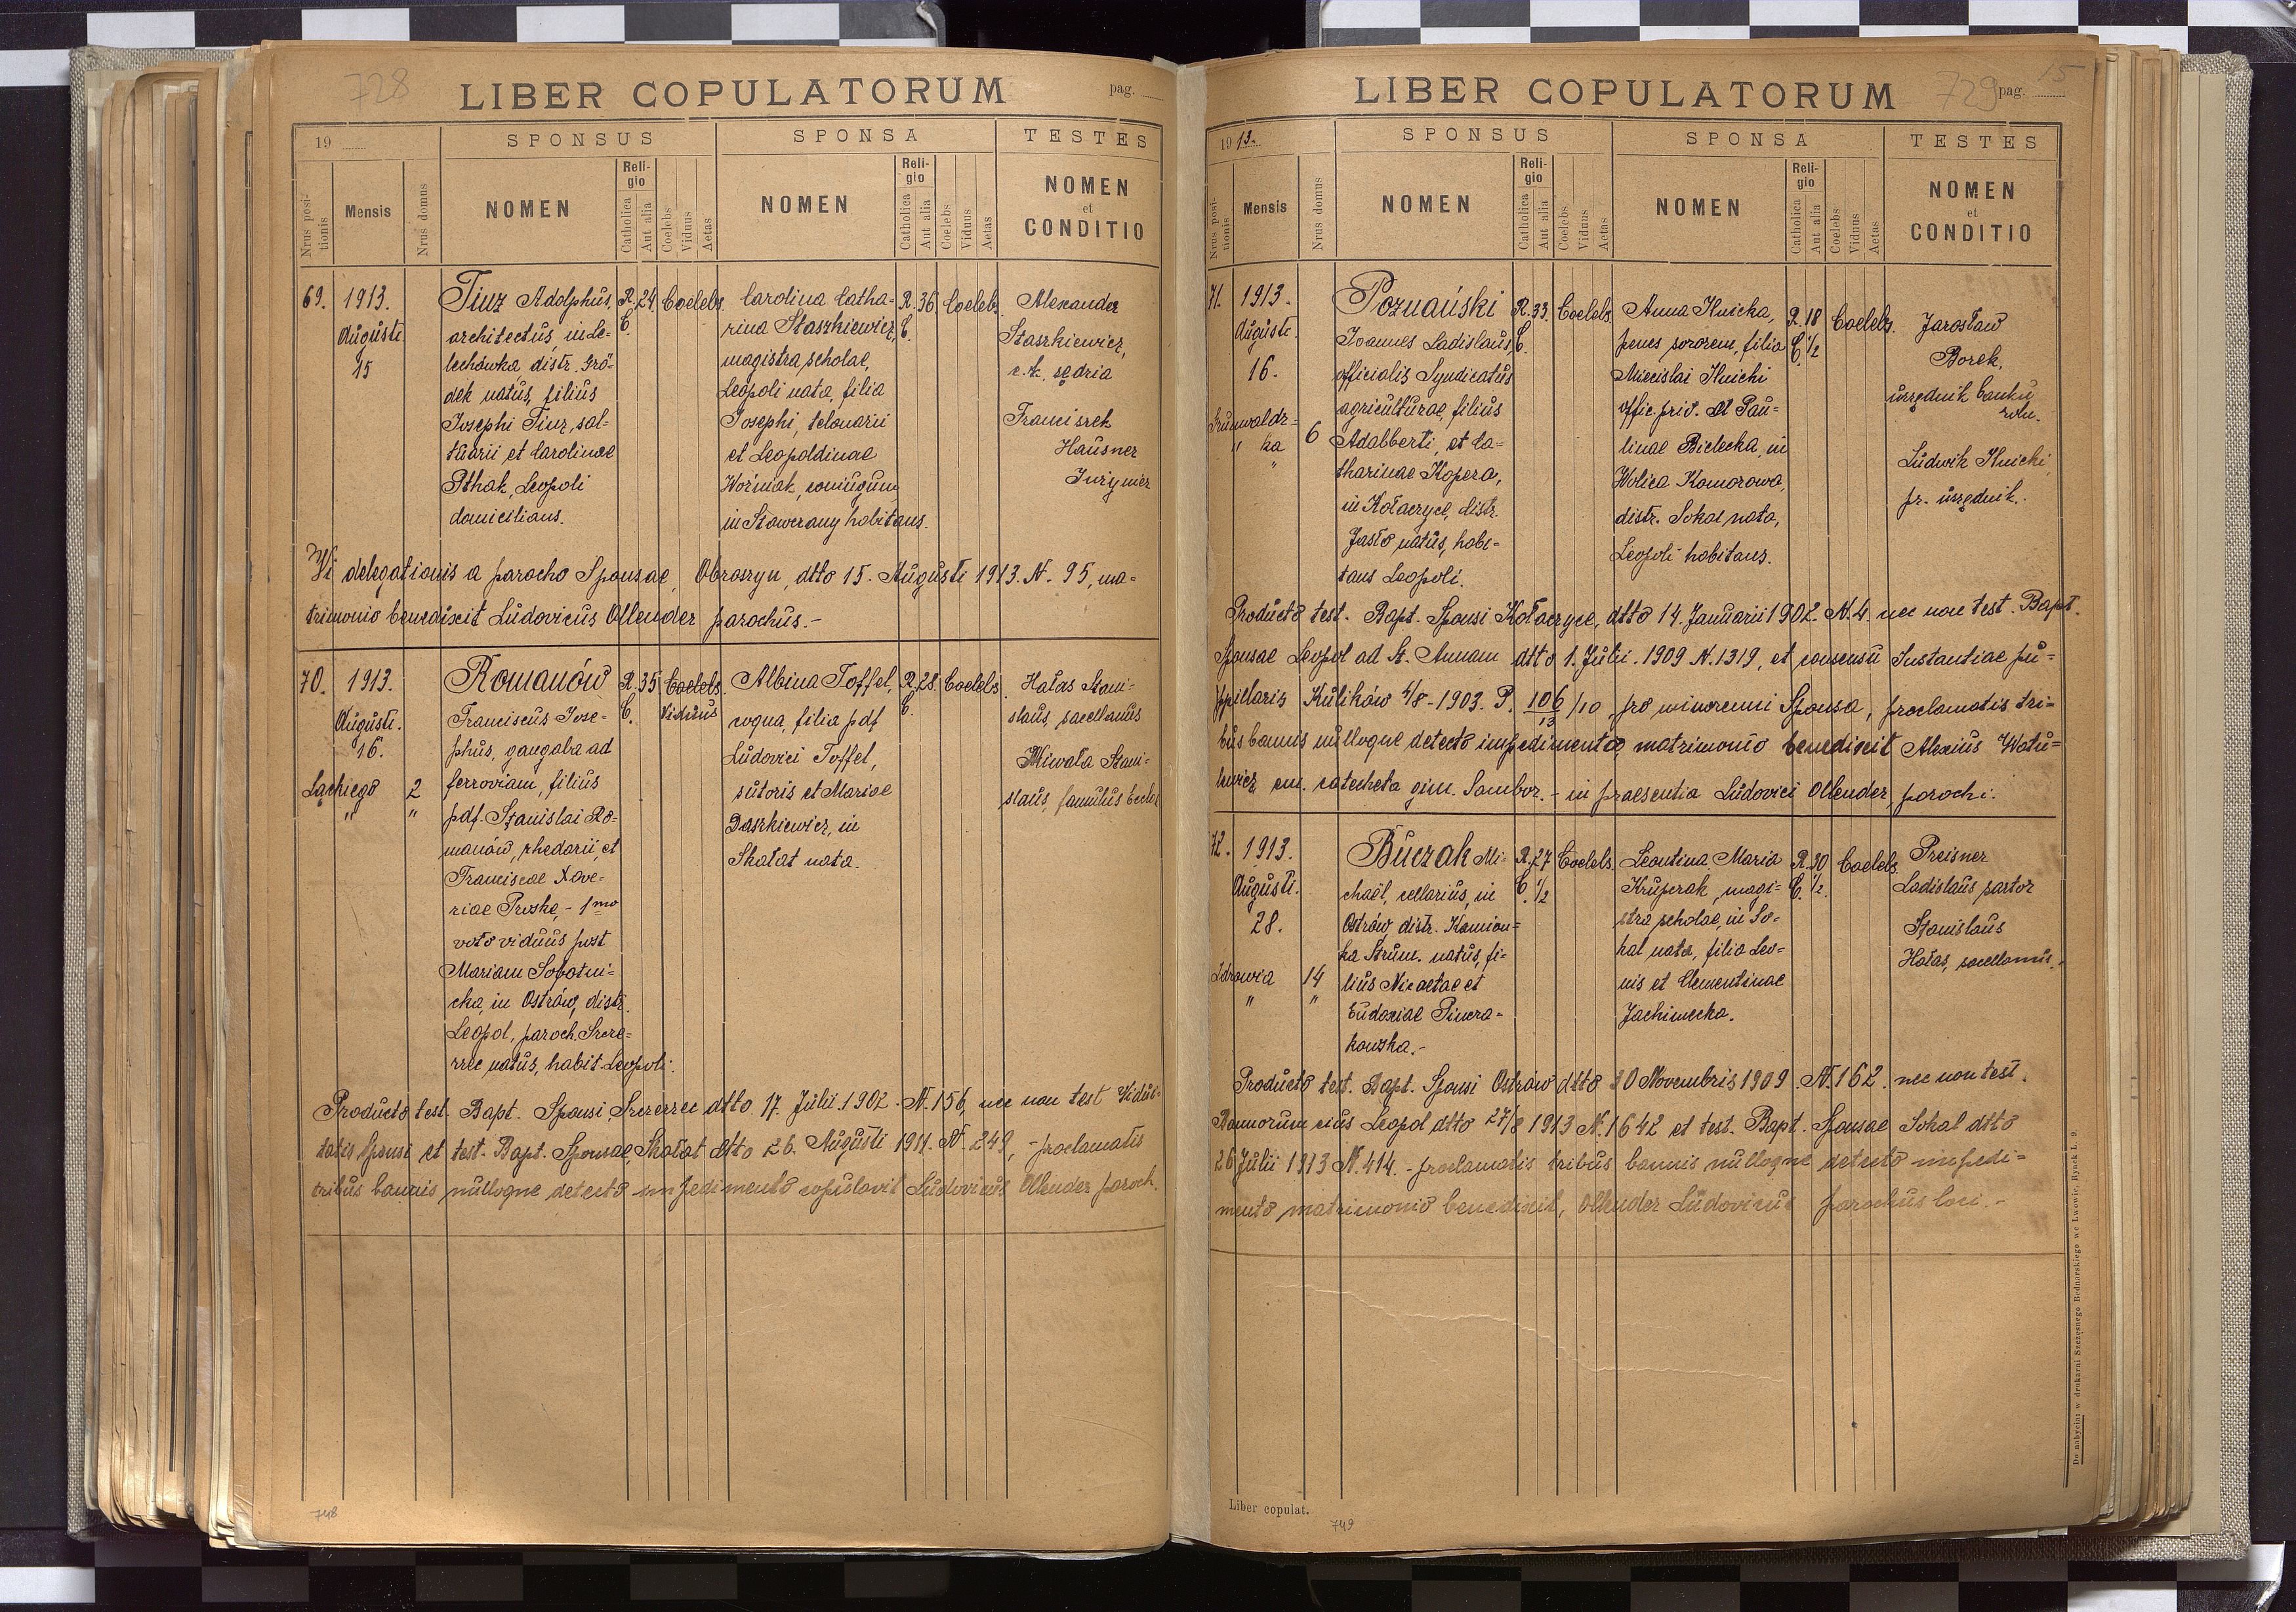 728
LIBER COPULATORUM
pag.
19
SPONSUS
SPONSA
TESTES
Nrus positionis
Mensis
Nrus domus
NOMEN
Religio
Catholica
Aut alia
Coelebs
Viduus
Aetas
NOMEN
Religio
Catholica
Aut alia
Coelebs
Viduus
Aetas
NOMEN
et
CONDITIO
69.
1913.
Augusti
15
Tinz Adolphus,
architectus, in Le-
lechówka, distr. Gró-
dek natus, filius
Josephi Tinz, sal-
tuarii et Carolinae
Pthak, Leopoli
domicilians.
R. C.
24
Coelebs.
Carolina Catha-
rina Staszkiewicz,
magistra scholae,
Leopoli nata, filia
Josephi, telonarii
et Leopoldinae
Woźniak, coniugum
in habitans.
R. C.
36
Coelebs.
Alexander
Staszkiewicz,
c.k. sędzia
Franciszek
Hausner
Inżynier
Vi delegationis a parocho Sponsae, Obroszyn, dtto 15. Augusti 1913. N. 95, ma-
trimonio benedixit Ludovicus Ollender parochus.-
70.
1913.
Augusti.
16.
Lackiego 2
" "
Romanów
Franciscus Jose-
phus, gangaba ad
ferroviam, filius
pdf. Stanislai Ro-
manów, rhedarii, et
Franciscae Xave-
riae - 1mo
voto viduus post
Mariam Sobotni-
cka, in Ostrów, distr.
Leopol, paroch. Szcze-
rzec natus, habit. Leopoli.
R. C.
35
Coelebs.
Viduus
Albina Toffel,
coqua, filia pdf
Ludovici Toffel,
sutoris et Mariae
Daszkiewicz, in
Skałat nata.
R. C.
28.
Coelebs.
Hałas Stani-
slaus, sacellanus
Niwała Stani-
slaus, famulus
Producto test. Bapt. Sponsi, Szczerzec dtto 17. Julii 1902. N. 156, nec non test Vidui-
tatis Sponsi et test. Bapt. Sponsae, Skałat dtto 26. Augusti 1911. N. 249, - proclamatis
tribus bannis nulloque detecto impedimento copulavit Ludovicus Ollender paroch.
748
LIBER COPULATORUM
729
pag.
15
1913.
SPONSUS
SPONSA
TESTES
Nrus positionis
Mensis
Nrus domus
NOMEN
Religio
Catholica
Aut alia
Coelebs
Viduus
Aetas
NOMEN
Religio
Catholica
Aut alia
Coelebs
Viduus
Aetas
NOMEN
et
CONDITIO
71.
1913.
Augusti.
16.
Grunwaldz-
" ka 6
"
Poznański
Joannes Ladislaus,
officialis Syndicatus
agriculturae, filius
Adalberti, et Ca-
tharinae Kopera,
in Kołaczyce, distr.
Jasło natus, habi-
tans Leopoli.
R. C.
33.
Coelebs.
Anna Ilnicka,
penes sororem, filia
Miecislai Ilnicki
offic. priv. et Pau-
linae Bielecka, in
Wolica Komorowa,
distr. Sokal nata,
Leopoli habitans.
R. C.
18 1/2
Coelebs.
Jarosław
Borek,
urzędnik banku
roln.
Ludwik Ilnicki,
pr. urzędnik.
Producto test. Bapt. Sponsi Kołaczyce, dtto 14. Januarii 1902. N. 4. nec non test. Bapt.
Sponsae Leopol ad St. Annam dtto 1. Julii. 1909 N. 1319, et consensu Instantiae pu-
ppillaris Kulików 4/8 - 1903. P. 106/13 /10, pro minorenni Sponsa, proclamatis tri-
bus bannis nulloque detecto impedimento, matrimonio benedixit Alexius Watu-
lewicz em. catecheta gim. Sambor. - in praesentia Ludovici Ollender, parochi.
72.
1913.
Augusti.
28.
Zdrowia 14
" "
Buczak Mi-
chaël, cellarius, in
Ostrów, distr. Kamion-
ka Strum. natus, fi-
lius Nicaetae et
Eudoxiae
R. C.
27 1/2
Coelebs.
Leontina Maria
Krupczak, magi-
stra scholae, in So-
kal nata, filia Leo-
nis et Clementinae
Jachimecka.
R. C.
30 1/2.
Coelebs.
Preisner
Ladislaus sartor
Stanislaus
Hałas, sacellanus.
Producto test. Bapt. Sponsi Ostrów dtto 20 Novembris 1909. N. 162. nec non test.
Bannorum eius Leopol dtto 27/8 1913 N. 1642 et test. Bapt. Sponsae Sokal dtto
26 Julii 1913 N. 414. - proclamatis tribus bannis nulloque detecto impedi-
mento matrimonio benedixit, Ollender Ludovicus parochus loci.-
Liber copulat.
749
Do nabycia: w drukarni Szczęsnego Bednarskiego we Lwowie, Rynek l. 9.